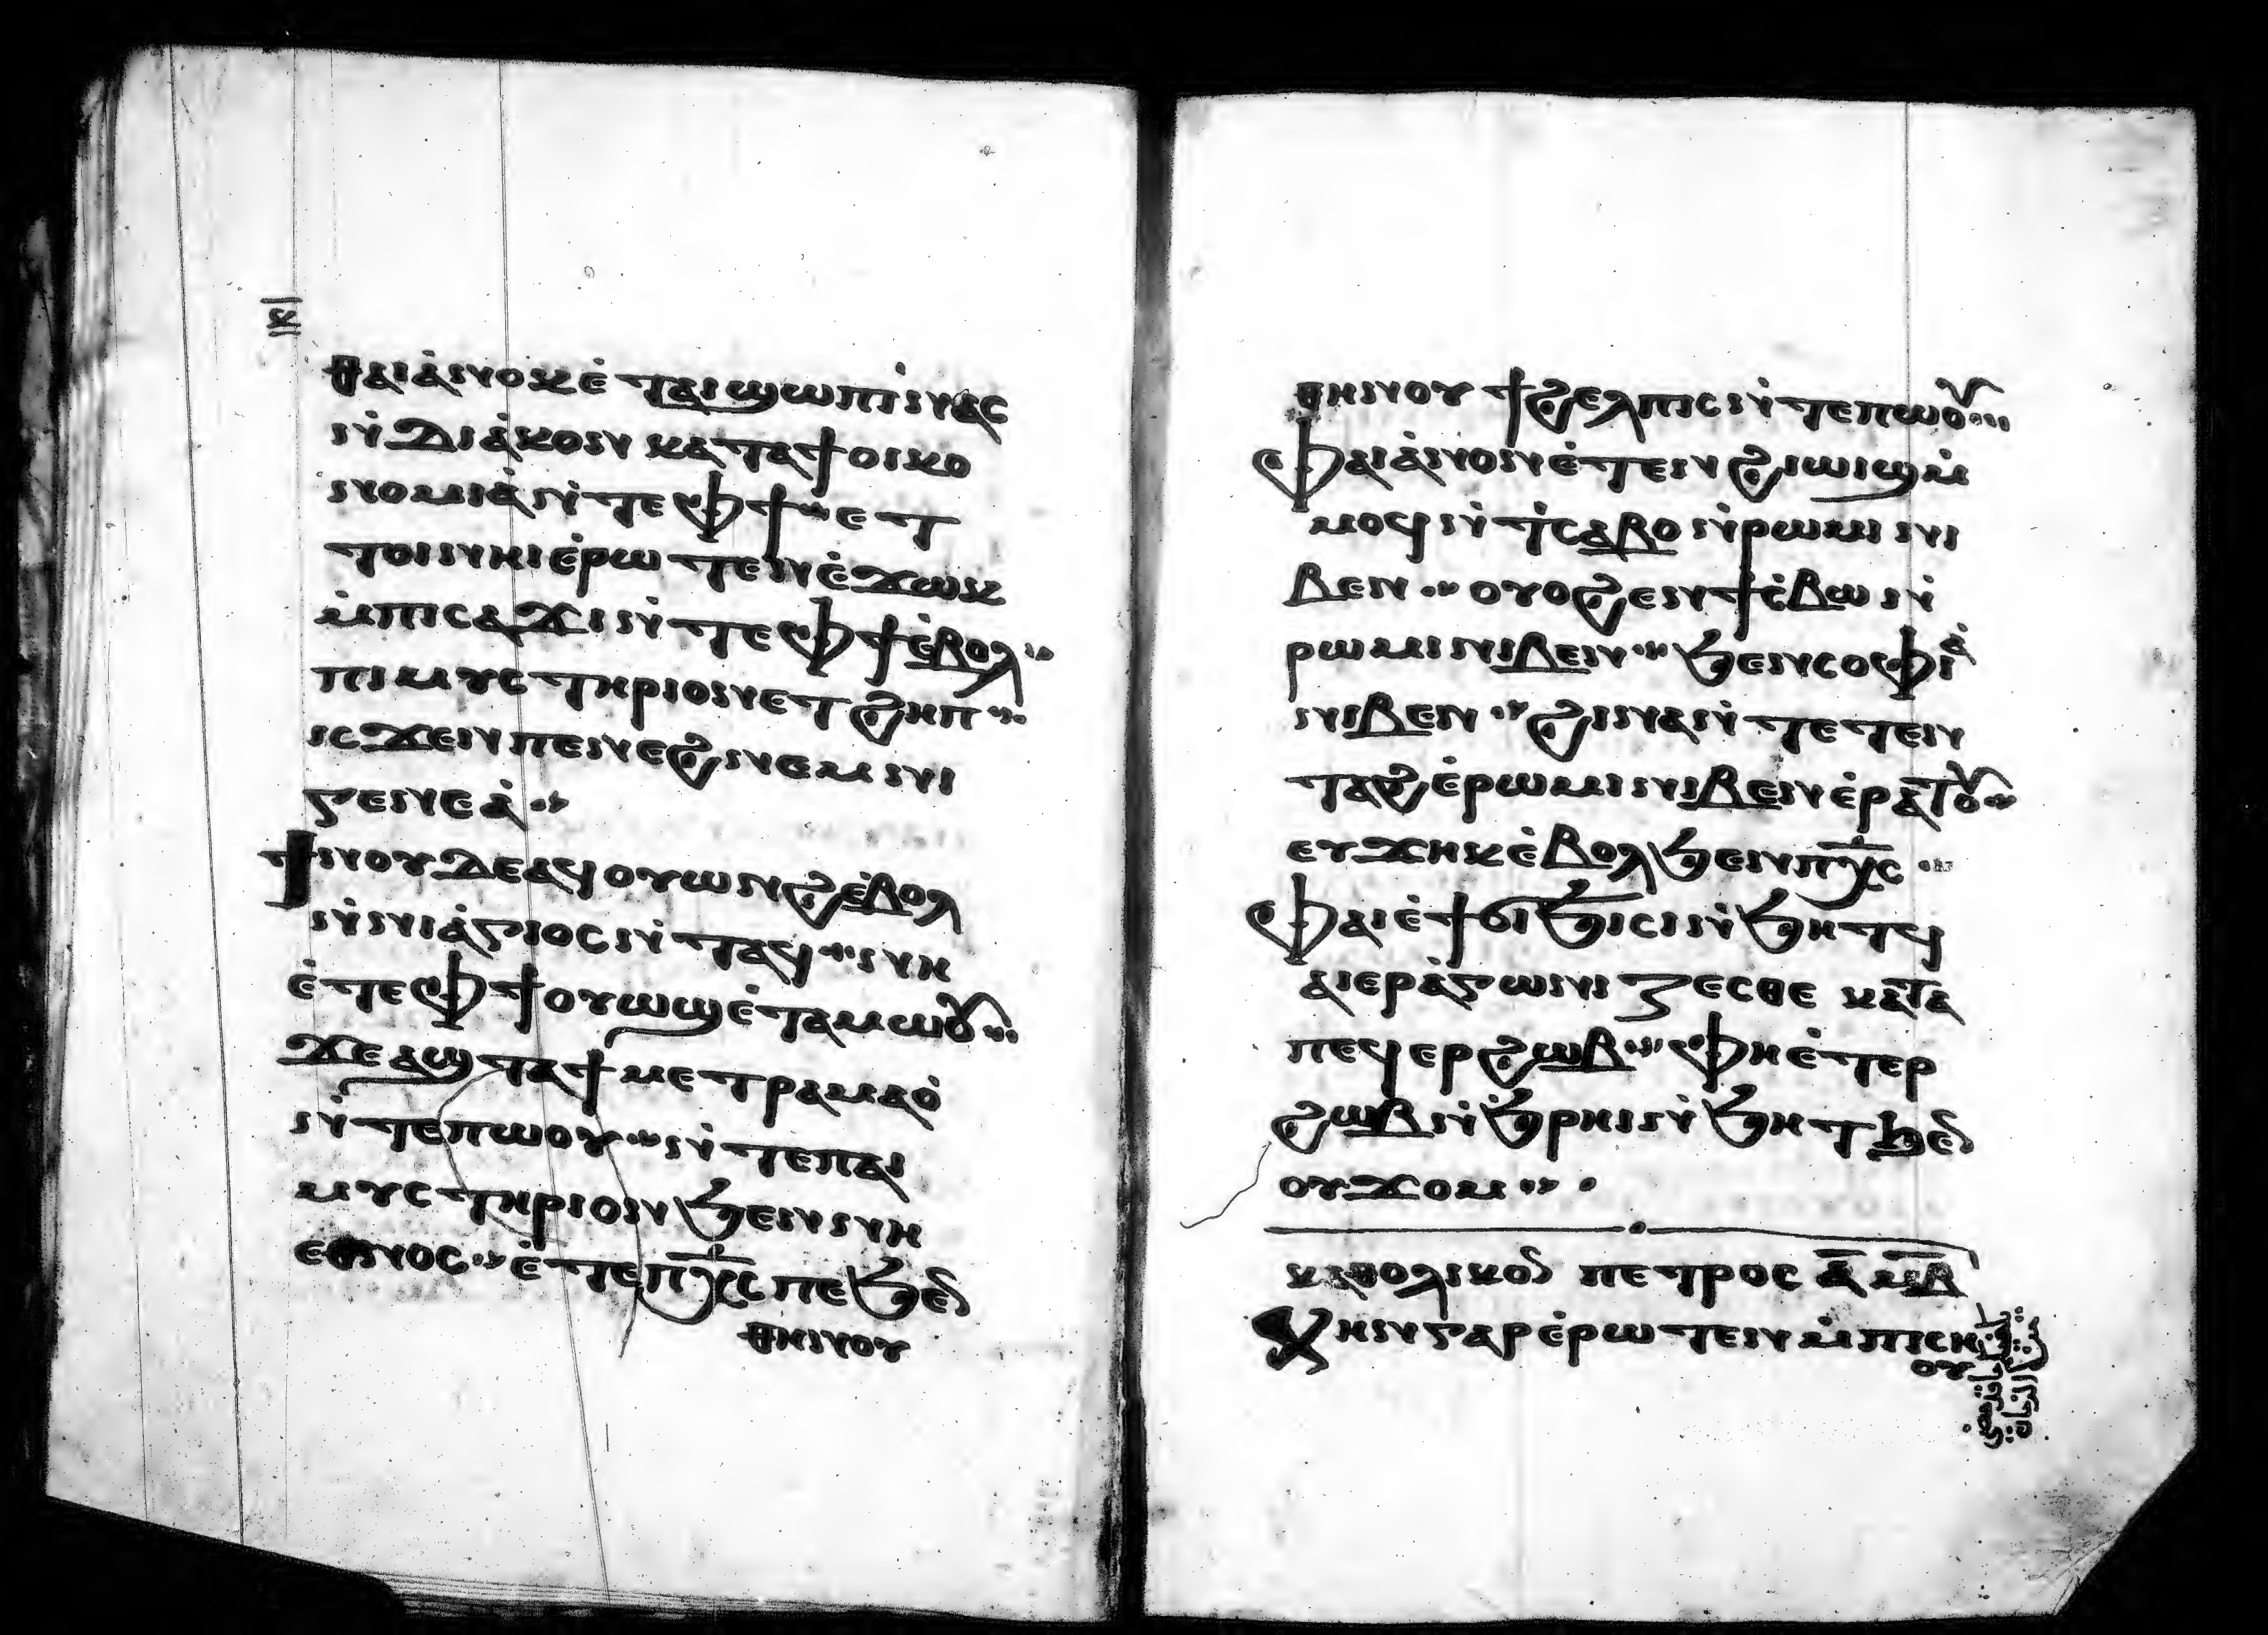 ⲕ̅
ⲑⲁⲓ ⲁ̇ⲛⲟⲕ ⲉ̇ⲧⲁⲓϣⲱⲡⲓ ⲛⲁⲥ
ⲛ̇ⲇⲓⲁ̇ⲕⲟⲛ ⲕⲁⲧⲁ ϯⲟⲓⲕⲟ
ⲛⲟⲙⲓⲁ̇ ⲛ̇ⲧⲉ ⲫϯ ⲉⲧ
ⲧⲟⲓ ⲛⲏⲓ ⲉ̇ⲣⲱⲧⲉⲛ ⲉ̇ϫⲱⲕ
ⲙ̇ⲡⲓⲥⲁϫⲓ ⲛ̇ⲧⲉ ⲫϯ ⲉ̇ⲃⲟⲗ
ⲡⲓⲙⲩⲥⲧⲏⲣⲓⲟⲛ ⲉⲧϩⲏⲡ
ⲓⲥϫⲉⲛ ⲡⲉⲛⲉϩ ⲛⲉⲙ ⲛⲓ
ⲅⲉⲛⲉⲁ̇
ϯⲛⲟⲩ ⲇⲉ ⲁϥⲟⲩⲱⲛϩ ⲉ̇ⲃⲟⲗ
ⲛ̇ⲛⲓⲁ̇ⲅⲓⲟⲥ ⲛ̇ⲧⲁϥ ⲛⲏ
ⲉ̇ⲧⲉ ⲫϯ ⲟⲩⲱϣ ⲉ̇ⲧⲁⲙⲱⲟⲩ
ϫⲉ ⲁϣ ⲧⲁ ϯⲙⲉⲧⲣⲁⲙⲁⲟ̇
ⲛ̇ⲧⲉ ⲡⲱⲟⲩ ⲛ̇ⲧⲉ ⲡⲁⲓ
ⲙⲩⲥⲧⲏⲣⲓⲟⲛ ϧⲉⲛ ⲛⲏ
ⲉⲑⲛⲟⲥ ⲉ̇ⲧⲉ ⲡⲭ̅ⲥ ⲡⲉ ϧⲉⲛ
ⲑⲏⲛⲟⲩ
ⲑⲏⲛⲟⲩ ϯϩⲉⲗⲡⲓⲥ ⲛ̇ⲧⲉ ⲡⲱⲟⲩ
ⲫⲁⲓ ⲁ̇ⲛⲟⲛ ⲉ̇ⲧⲉⲛϩⲓⲱⲓϣ ⲙ̇
ⲙⲟϥ ⲛ̇ⲧ̇ⲥⲁⲃⲟ ⲛ̇ⲣⲱⲙⲓ ⲛⲓ
ⲃⲉⲛ ⲟⲩⲟϩ ⲉⲛϯⲥ̇ⲃⲱ ⲛ̇
ⲣⲱⲙⲓ ⲛⲓⲃⲉⲛ ϧⲉⲛ ⲥⲟⲫⲓⲁ̇
ⲛⲓⲃⲉⲛ ϩⲓⲛⲁ ⲛ̇ⲧⲉⲧⲉⲛ
ⲧⲁϩⲉ̇ ⲣⲱⲙⲓ ⲛⲓⲃⲉⲛ ⲉ̇ⲣⲁⲧⲟⲩ
ⲉⲩϫⲏⲕ ⲉ̇ⲃⲟⲗ ϧⲉⲛ ⲡⲭ̅ⲥ
ⲫⲁⲓ ⲉ̇ϯϭⲓϧⲓⲥⲓ ⲛ̇ϧⲏⲧϥ
ⲁⲓⲉⲣⲁ̇ⲅⲱⲛⲓⲍⲉⲥⲑⲉ ⲕⲁⲧⲁ
ⲡⲉϥⲉⲣϩⲱⲃ ⲫⲏ ⲉ̇ⲧⲉⲣ
ϩⲱⲃ ⲛ̇ϧⲣⲏⲓ ⲛ̇ϧⲏⲧ ϧⲉⲛ
ⲟⲩϫⲟⲙ
ⲕⲁⲑⲟⲗⲓⲕⲟⲛ ⲡⲉⲧⲣⲟⲥ ⲁ̅ ⲙ̅ⲃ̅
ⲭⲏⲛ ⲅⲁⲣ ⲉ̇ⲣⲱⲧⲉⲛ ⲙ̇ⲡⲓⲥⲏ
ⲟⲩ